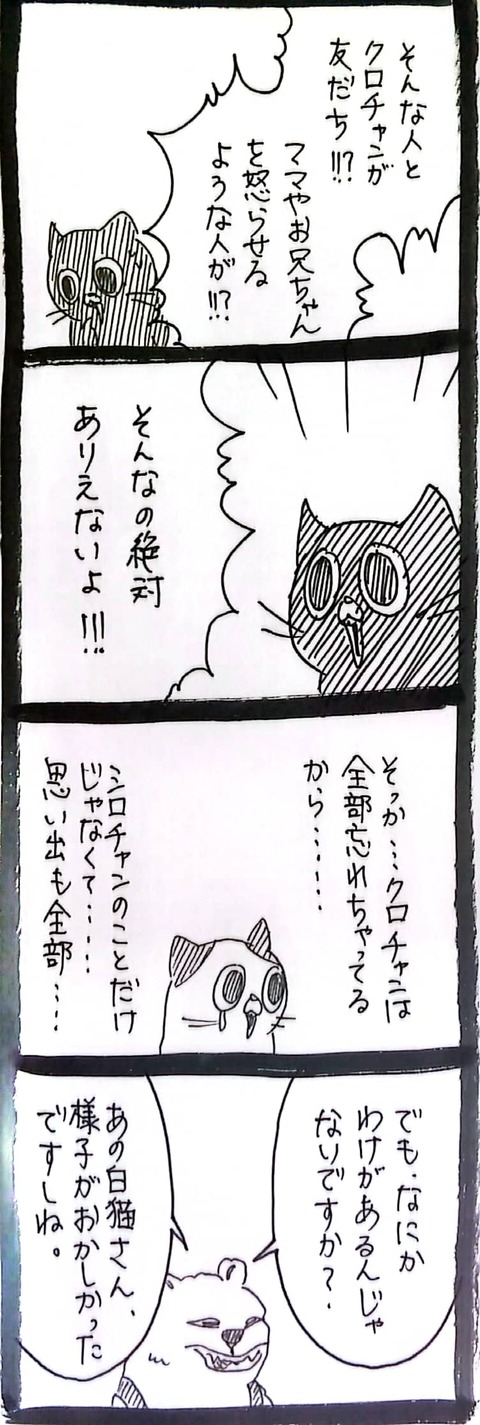 そんな人と
クロチャンが
友だち!!?
ママやお兄ちゃん
を怒らせる
ような人が!!?
そんなの絶対
ありえないよ!!!
そっか…クロチャンは
全部忘れちゃってる
から……
シロチャンのことだけ
じゃなくて……
思い出も全部……
でも、なにか
わけがあるんじゃ
ないですか?
あの白猫さん、
様子がおかしかった
ですしね。